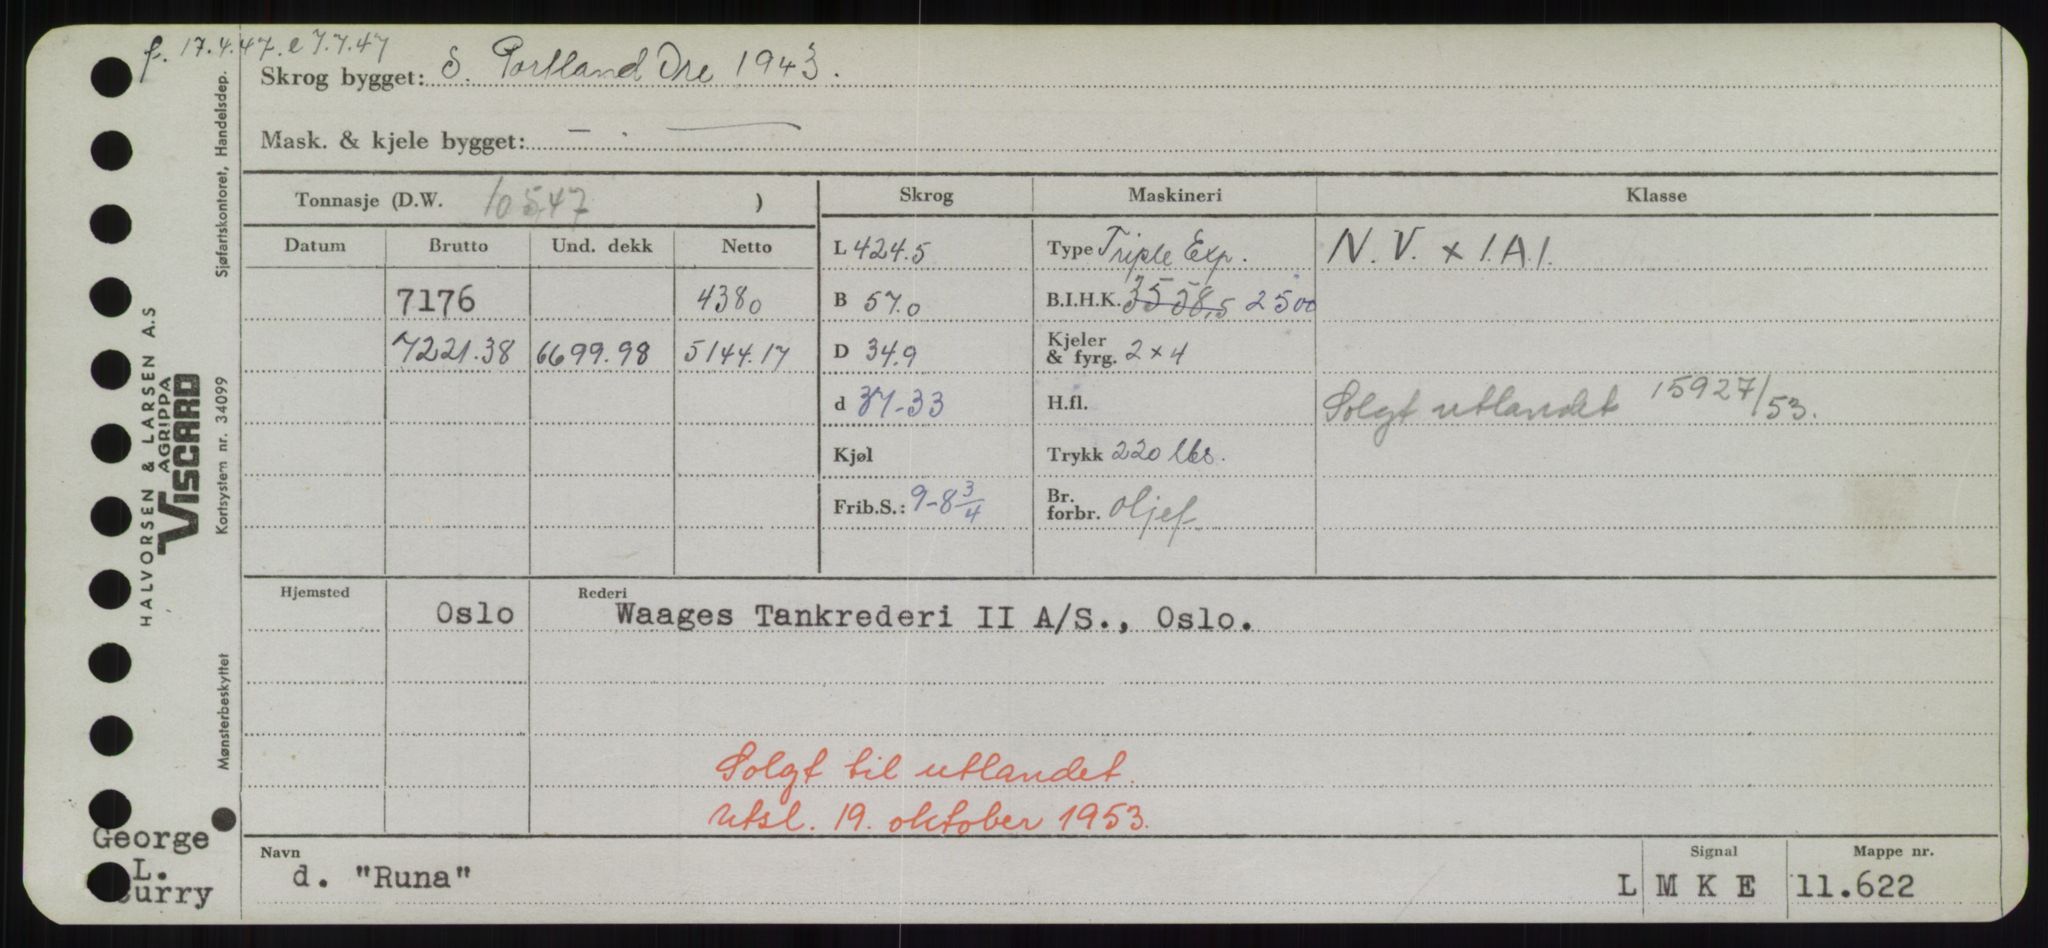 f. 17.4.47. e 7.7.47
Skrog bygget: S. Portland Ore 1943.
Mask. & kjele bygget: — . —
Tonnasje (D.W. 10547 )
Skrog Maskineri Klasse
Datum Brutto Und. dekk Netto
L 424.5 Type Triple Exp. N. V. x 1.A.1.
7176 4380 B 57.0 B.I.H.K. 3558,5 2500
7221.38 6699.98 5144.17 D 34.9 Kjeler & fyrg. 2 x 4
d 37-33 H.fl. Solgt utlandet 15927/53.
Kjøl Trykk 220 lbs.
Frib.S.: 9-8 3/4 Br. forbr. oljef.
Hjemsted Rederi
Oslo Waages Tankrederi II A/S., Oslo.
Solgt til utlandet.
Utsl. 19. oktober 1953.
Navn Signal Mappe nr.
d. "Runa" L M K E 11.622
George
L.
urry
HALVORSEN & LARSEN A.S
AGRIPPA
VISCARD
Sjøfartskontoret, Handelsdep.
Kortsystem nr. 34099
Mønsterbeskyttet